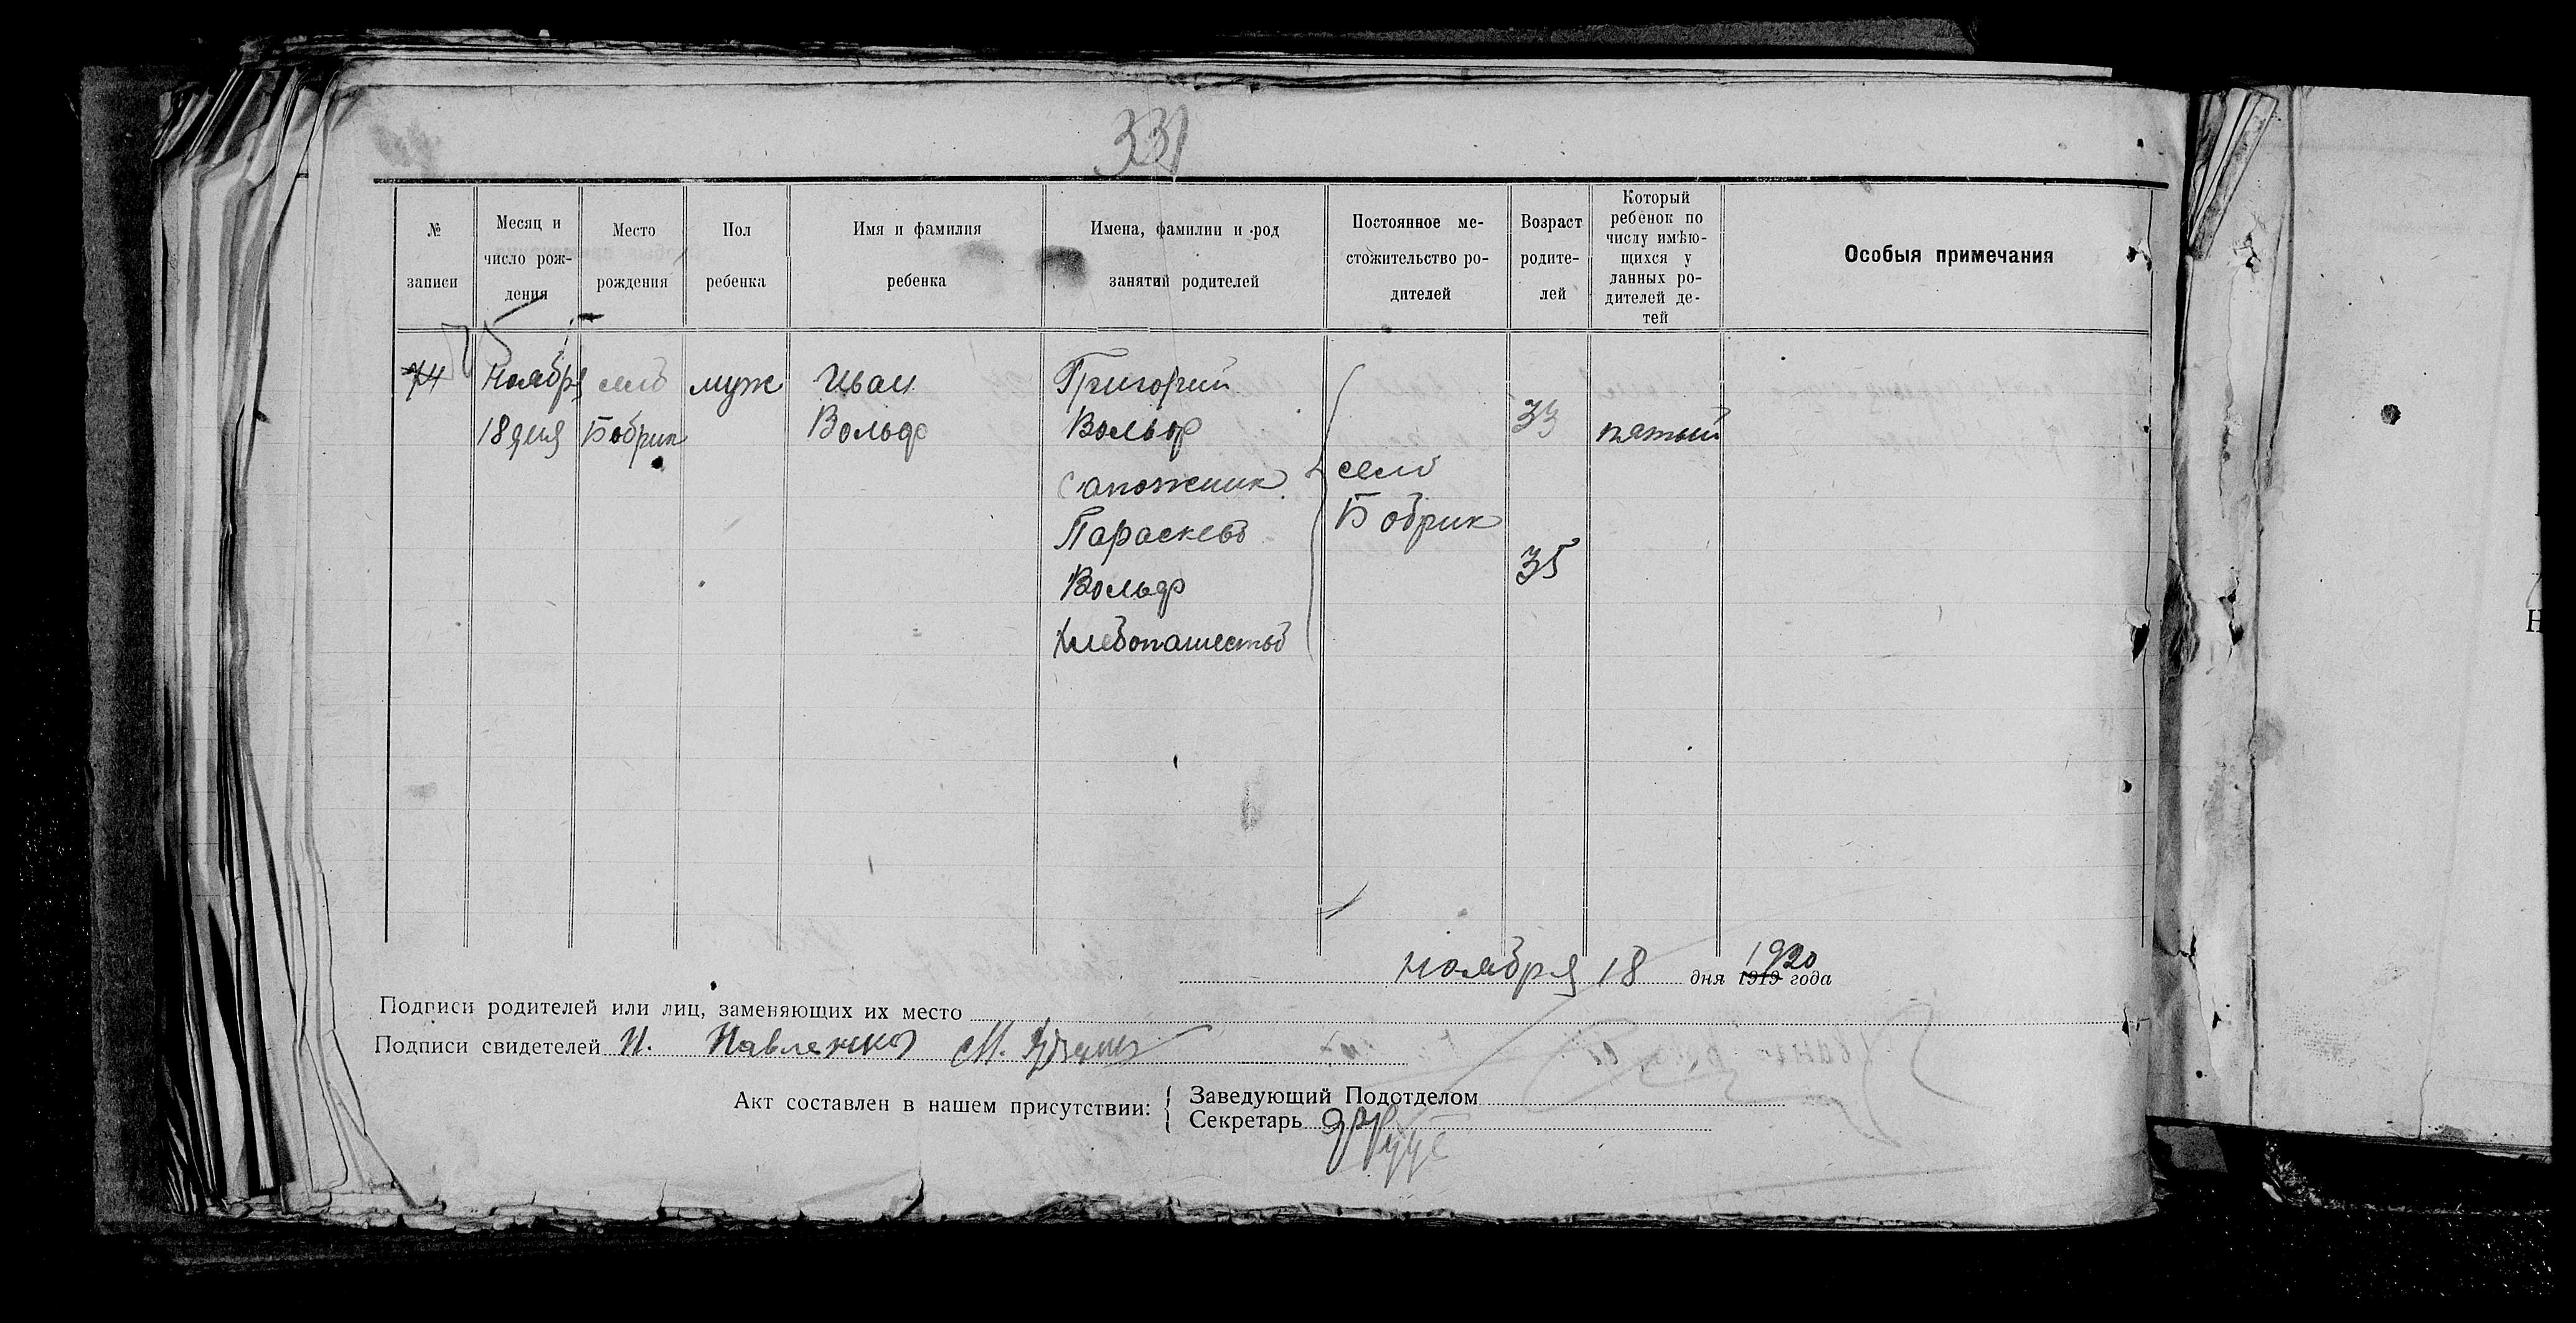 331
№ записи
Месяц и число рож-дения
Место рождения
Пол ребенка
Имя и фамилия ребенка
Имена, фамилии и род занятий родителей
Постоянное ме-стожительство ро-дителей
Возраст родите-лей
Который ребенок по числу имѣю-щихся у данных ро-дителей де-тей
Особыя примечания
74
Ноября
18 дня
село
Бобрик
муж
Иван
Вольф
Григорий
Вольф
сапожник
Параскева
Вольф
хлебопашество
село
Бобрик
33
35
пятый
ноября 18 дня 1919 1920 года
Подписи родителей или лиц, заменяющих их место
Подписи свидетелей И. Павленко М.
Акт составлен в нашем присутствии:
Заведующий Подотделом
Секретарь